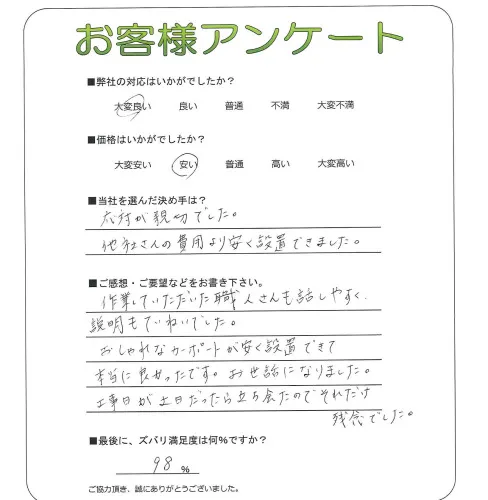 お客様アンケート
■弊社の対応はいかがでしたか？
大変良い 良い 普通 不満 大変不満
■価格はいかがでしたか？
大変安い 安い 普通 高い 大変高い
■当社を選んだ決め手は？
応対が親切でした。
他社さんの費用より安く設置できました。
■ご感想・ご要望などをお書き下さい。
作業していただいた職人さんも話しやすく、
説明もていねいでした。
おしゃれなカーポートが安く設置できて
本当に良かったです。お世話になりました。
工事日が土日だったら立ち会えたのでそれだけ
残念でした。
■最後に、ズバリ満足度は何%ですか？
98 %
ご協力頂き、誠にありがとうございました。